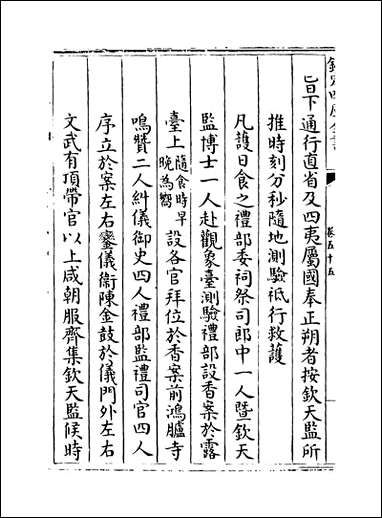 欽定四庫全書
卷五十五
旨下通行直省及四夷屬國奉正朔者按欽天監所
推時刻分秒隨地測驗祗行救護
凡護日食之禮部委祠祭司郎中一人暨欽天
監博士一人赴觀象臺測驗禮部設香案於露
臺上隨食時早晚為嚮設各官拜位於香案前鴻臚寺
鳴贊二人糾儀御史四人禮部監禮司官四人
序立於案左右鑾儀衛陳金鼓於儀門外左右
文武有頂帶官以上咸朝服齊集欽天監候時